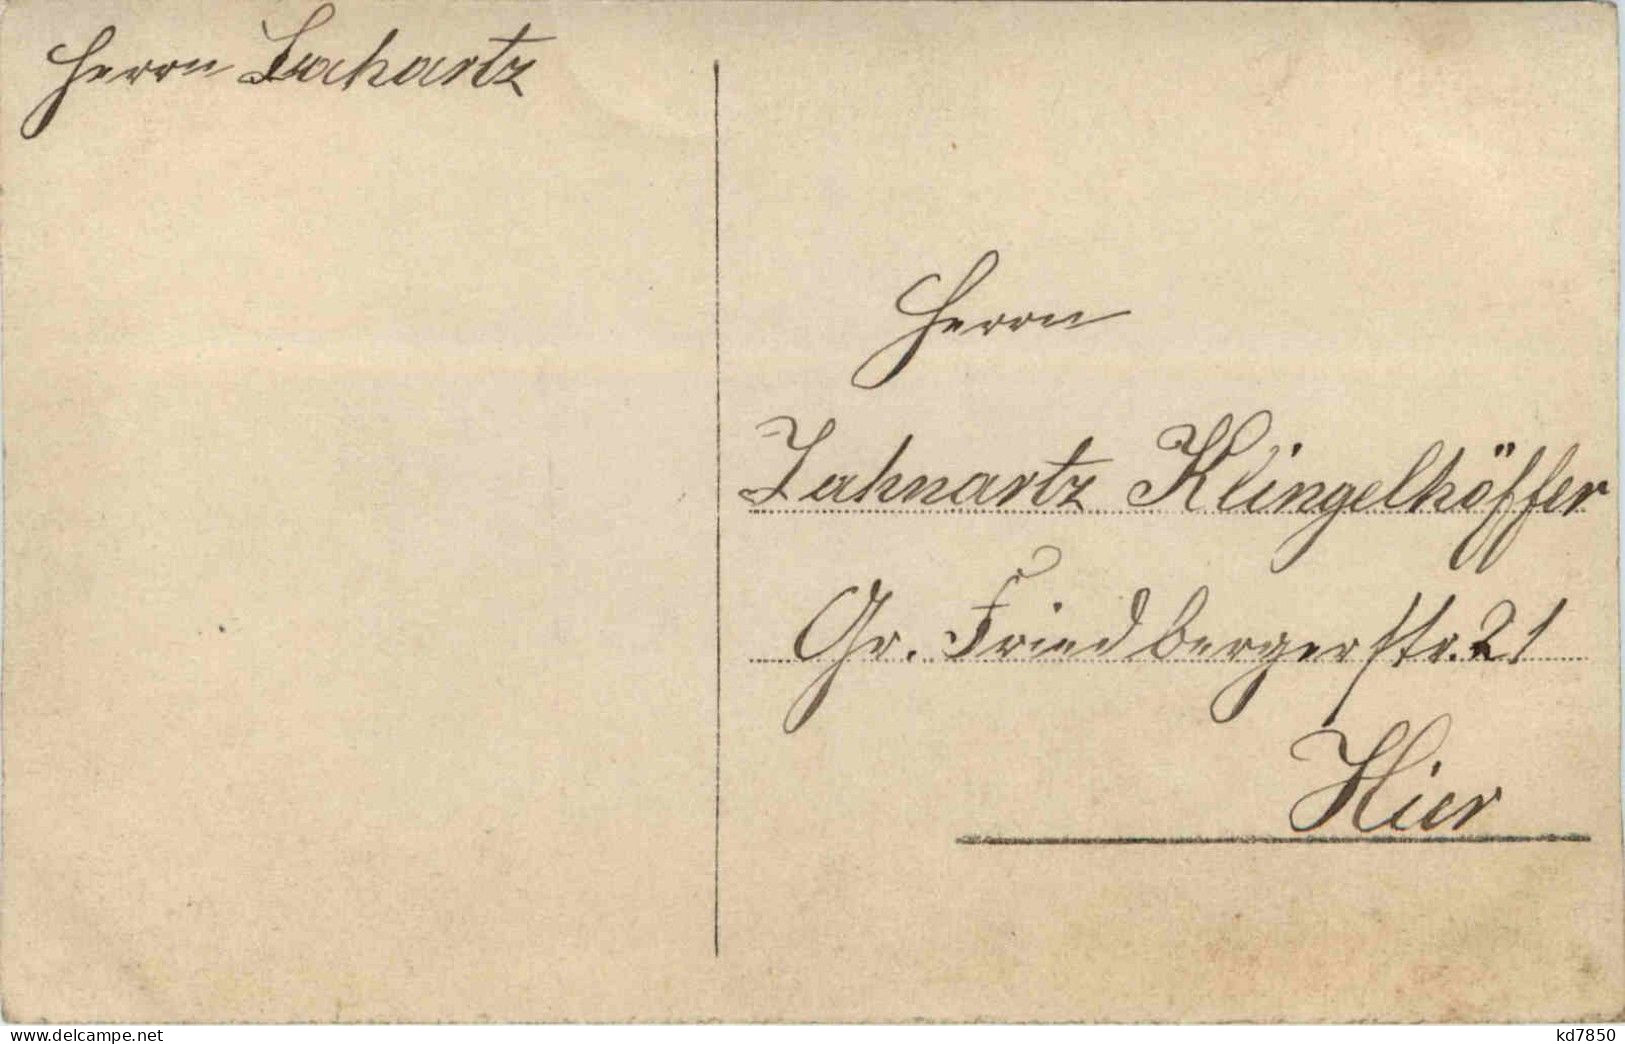 Herrn Zahartz
Herrn
Zahnartz Klingelhöffer
Gr. Friedbergerstr. 21
Hier
www.delcampe.net
kd7850